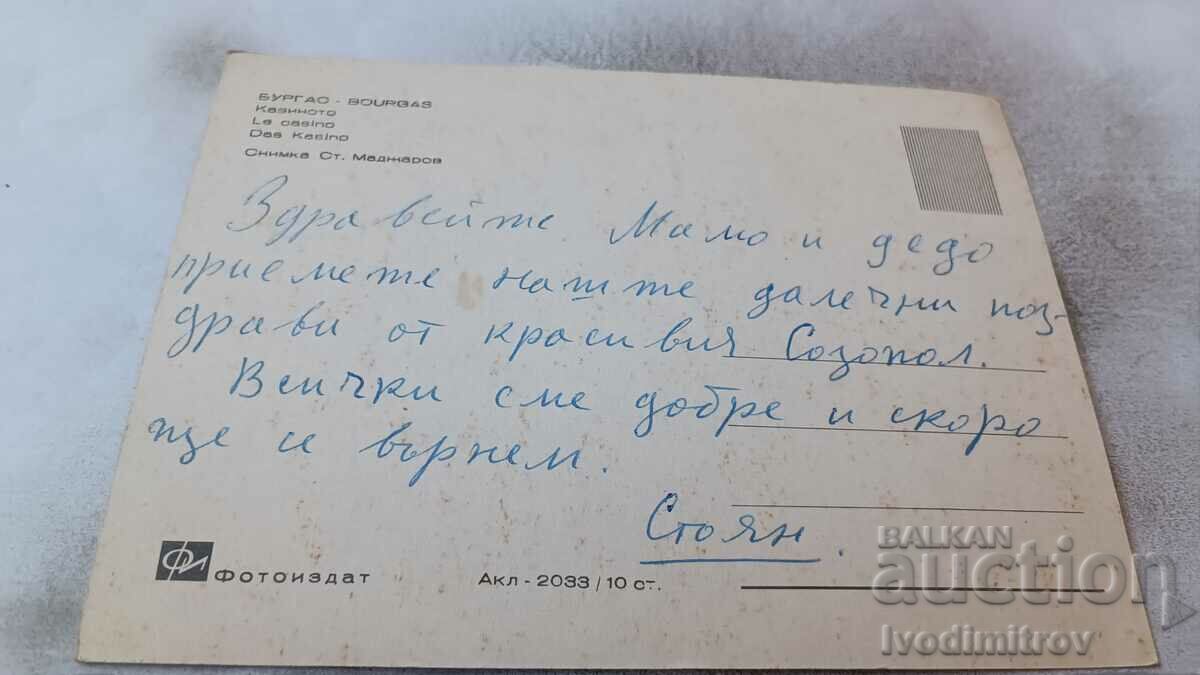 БУРГАС - BOURGAS
Казиното
Le casino
Das Kasino
Снимка Ст. Маджаров
Здравейте Мамо и дедо
приемете наште далечни поз-
драви от красивия Созопол.
Всички сме добре и скоро
ще се върнем.
Стоян.
Фотоиздат
Акл - 2033 / 10 ст.
BALKAN
auction
Ivodimitrov